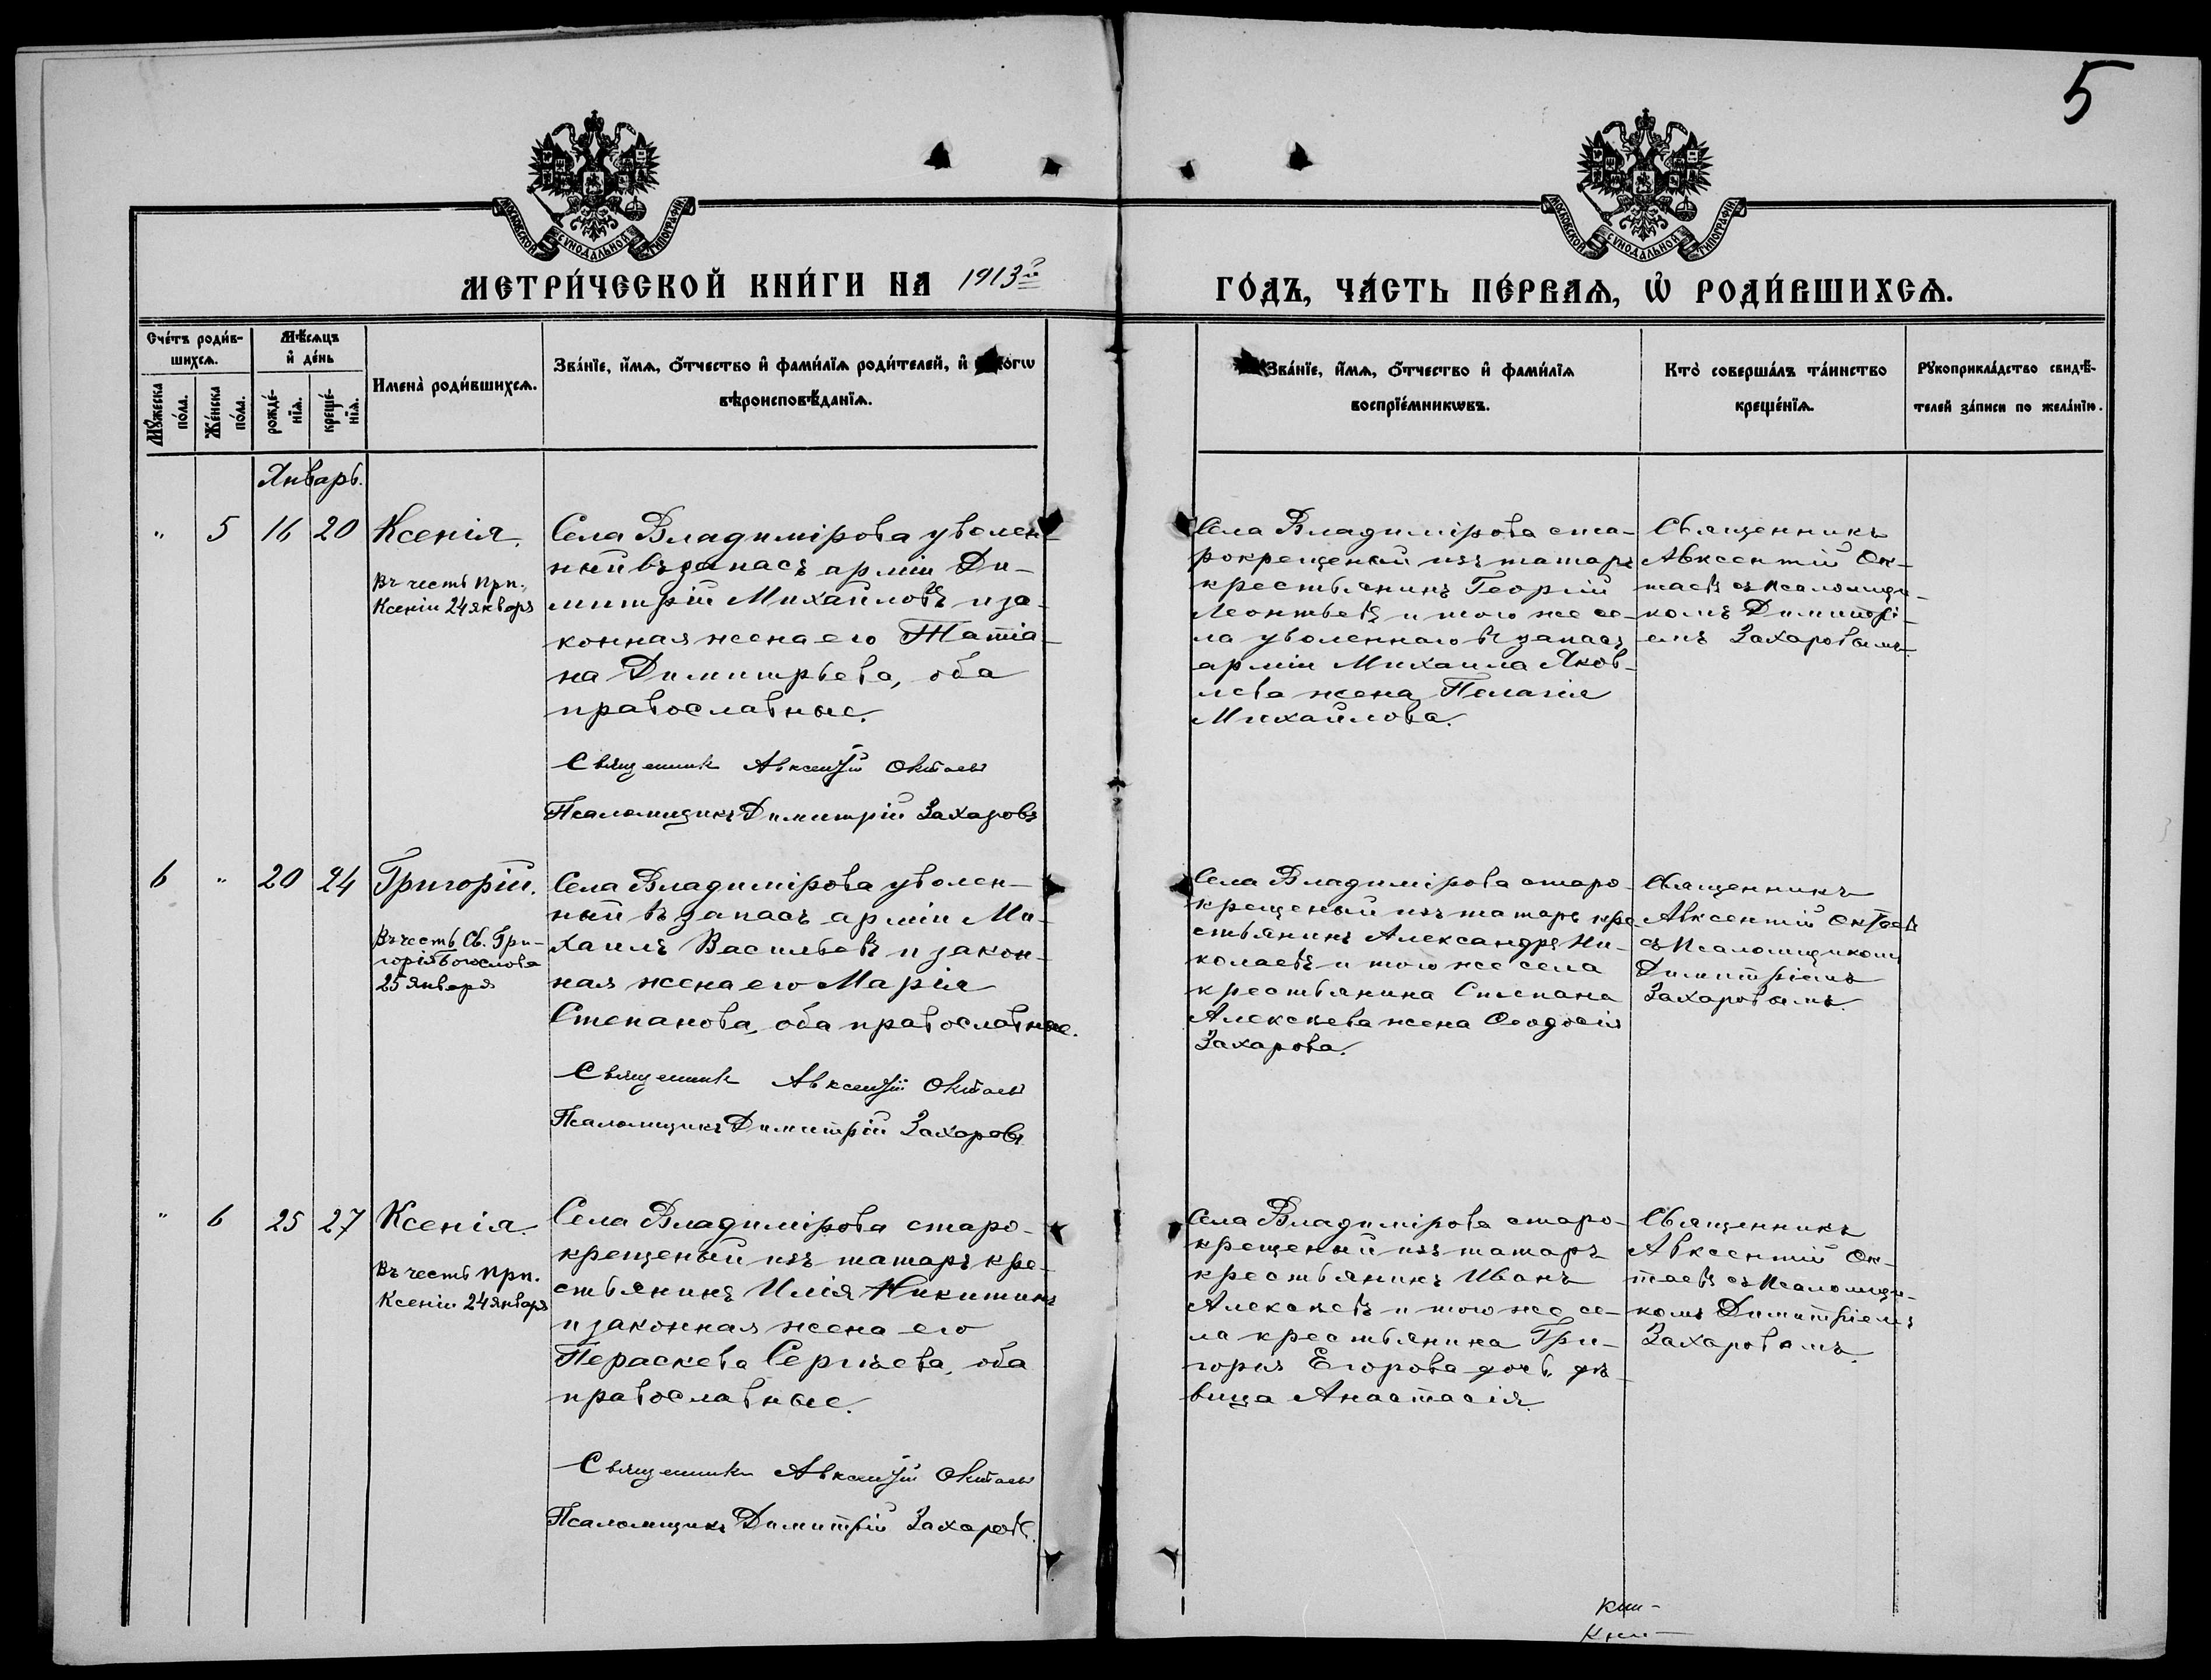 5
МОСКОВСКОЙ СѴНОДАЛЬНОЙ ТИПОГРАФІИ
МОСКОВСКОЙ СѴНОДАЛЬНОЙ ТИПОГРАФІИ
МЕТРИ́ЧЕСКОЙ КНИ́ГИ НА 1913й ГО́ДЪ, ЧА́СТЬ ПЕ́РВАѦ, Ѡ҆ РОДИ́ВШИХСѦ.
Сче́тъ роди́в-
шихсѧ.
Мꙋ́жеска
по́ла.
Же́нска
по́ла.
Мѣ́сѧцъ
и҆ де́нь
рожде́-
нїѧ.
креще́-
нїѧ.
Имена̀ роди́вшихсѧ.
Зва́нїе, и҆́мѧ, ѻ҆́тчество и҆ фами́лїѧ роди́телей, и҆
вѣроисповѣ́данїѧ.
Зва́нїе, и҆́мѧ, ѻ҆́тчество и҆ фами́лїѧ
воспрїе́мникѡвъ.
Кто̀ соверша́лъ та́инство
креще́нїѧ.
Рꙋкоприкла́дство свидѣ́-
телей за́писи по жела́нїю.
Январь.
" 5 16 20
Ксенія.
Въ честь прп.
Ксеніи 24 января
Села Владимірова уволен-
ный въ запасъ арміи Ди-
митрій Михайловъ и за-
конная жена его Татіа-
на Димитрьева, оба
православные.
Священникъ Авксентій Октаевъ
Псаломщикъ Димитрій Захаровъ
Села Владимірова ста-
рокрещеный изъ татаръ
крестьянинъ Георгій
Леонтьевъ и того же се-
ла уволеннаго въ запасъ
арміи Михаила Яков-
лева жена Пелагія
Михайлова.
Священникъ
Авксентій Ок-
таевъ съ псаломщи-
комъ Димитрі-
емъ Захаровымъ.
6 " 20 24
Григорій.
Въ честь Св. Гри-
горія Богослова
25 января
Села Владимірова уволен-
ный въ запасъ арміи Ми-
хаилъ Васильевъ и закон-
ная жена его Марія
Степанова, оба православные.
Священникъ Авксентій Октаевъ
Псаломщикъ Димитрій Захаровъ
Села Владимірова старо-
крещеный изъ татаръ кре-
стьянинъ Александръ Ни-
колаевъ и того же села
крестьянина Степана
Алексѣева жена Ѳеодосія
Захарова.
Священникъ
Авксентій Октаевъ
съ Псаломщикомъ
Димитріемъ
Захаровымъ.
" 6 25 27
Ксенія.
Въ честь прп.
Ксеніи 24 января
Села Владимірова старо-
крещеный изъ татаръ кре-
стьянинъ Илія Никитинъ
и законная жена его
Параскева Сергѣева, оба
православные.
Священникъ Авксентій Октаевъ
Псаломщикъ Димитрій Захаровъ.
Села Владимірова старо-
крещеный изъ татаръ
крестьянинъ Иванъ
Алексѣевъ и того же се-
ла крестьянина Гри-
горія Егорова дочь дѣ-
вица Анастасія.
Священникъ
Авксентій Ок-
таевъ съ псаломщи-
комъ Димитріемъ
Захаровымъ.
Кни-
Кни-